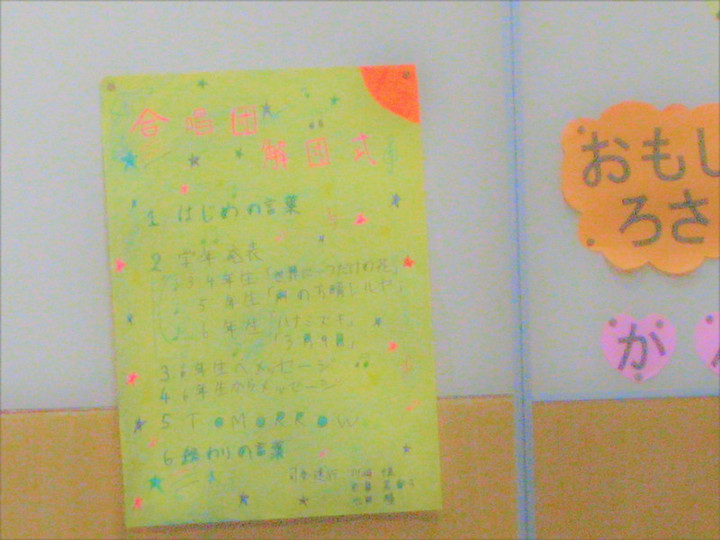 合唱団
解団式
1 はじめの言葉
2 学年発表
♪3.4年生「世界に一つだけの花」
♪ 5年生「
♪ 6年生「ハナミズキ」
「3月9日」
3 6年生へメッセージ
4 6年生からメッセージ
5 TOMORROW
6 終わりの言葉
司会進行
おもし
ろさ
か